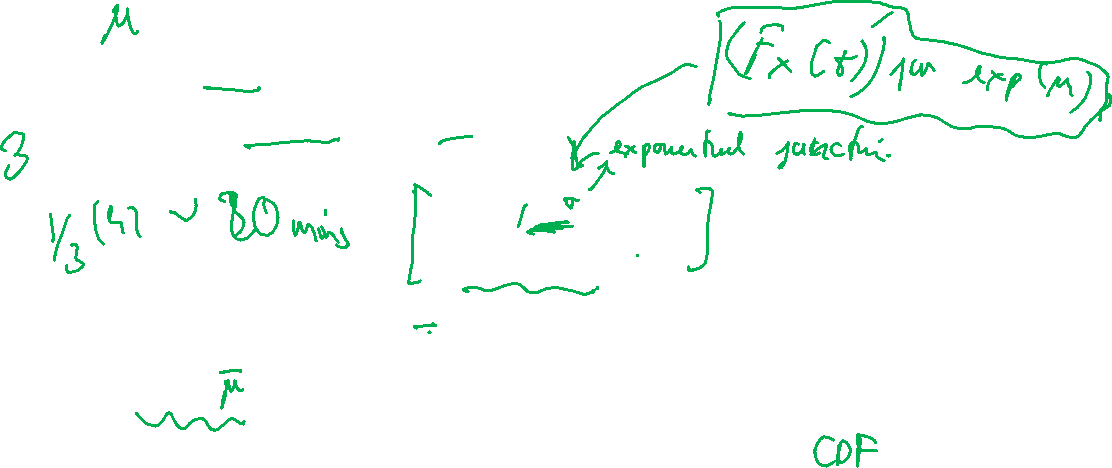 μ
(Fx(t)) for exp(μ)
3
exponential function.
1/3 (4) ~ 80 mins [ ]
μ
CDF